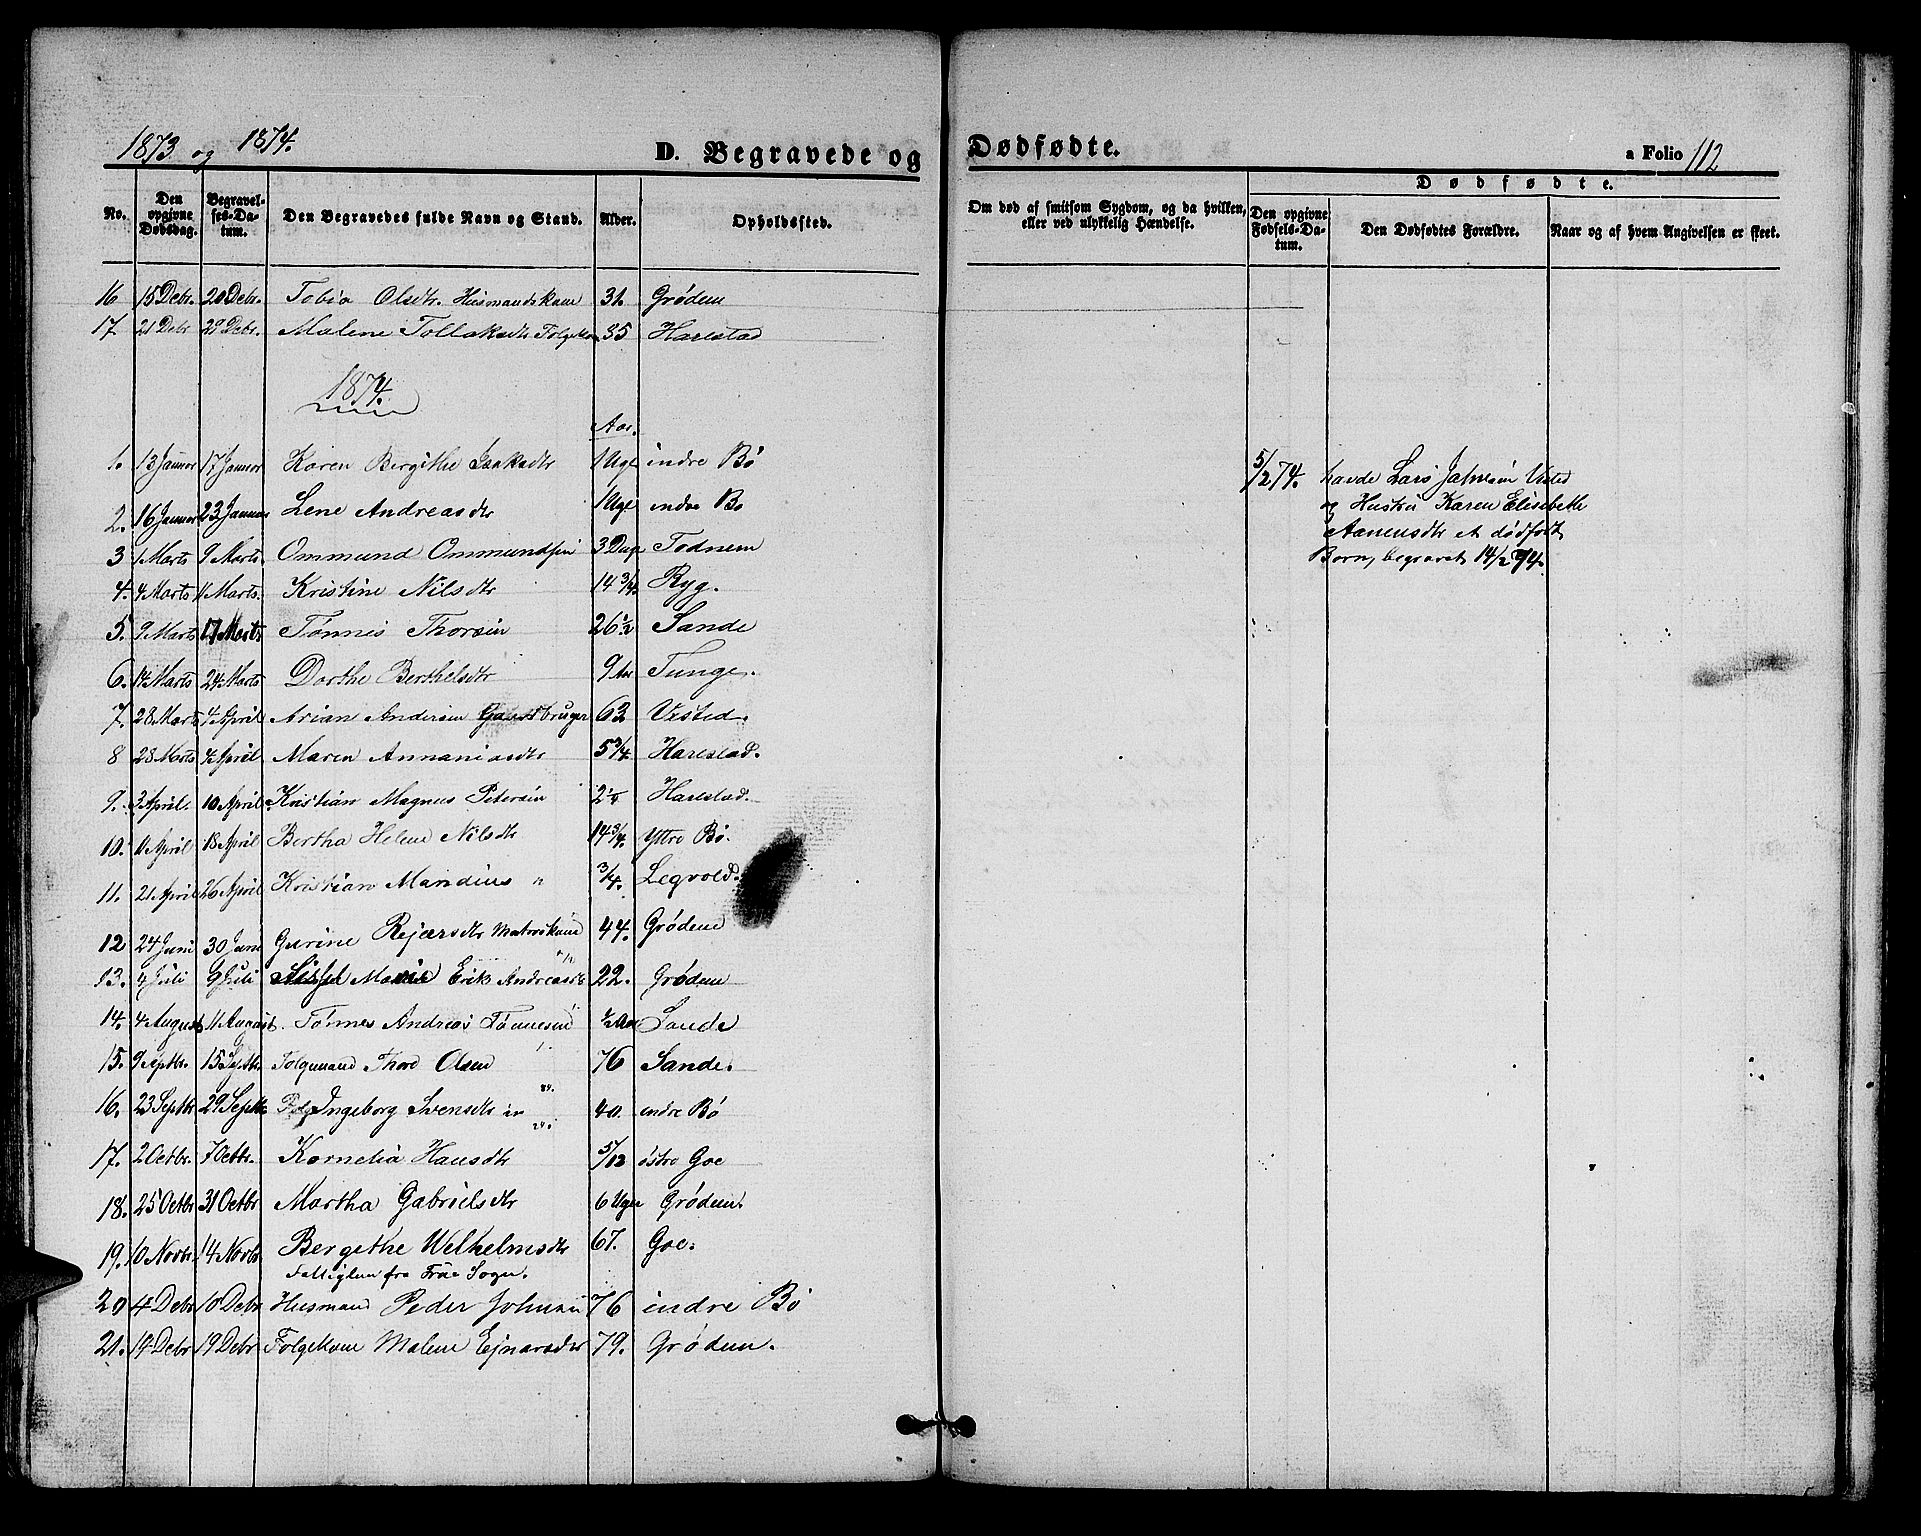 1873 og 1874.
D. Begravede og Dødfødte.
a Folio 112
No. Den opgivne Dødsdag. Begravelses-Datum. Den Begravedes fulde Navn og Stand. Alder. Opholdssted. Om død af smitsom Sygdom, og da hvilken, eller ved ulykkelig Hændelse.
Dødfødte.
Den opgivne Fødsels-Datum. Den Dødfødtes Forældre. Naar og af hvem Angivelsen er skeet.
16 15 Debr. 20 Debr. Tobia Olsdtr. Husmandskone 31. Grødem
17. 21 Debr 29 Debr. Malene Tollaksdtr 35 Harestad
1874.
Aar.
1. 13 Januar 17 Januar Karen Bergithe 1 Uge indre Bø
2. 16 Januar 23 Januar Lene Andreasdtr 1 Uge indre Bø
3 1 Marts 9 Marts. Ommund Ommundsen 3 Dage Todnem
4. 4 Marts 11 Marts. Kristine Nilsdtr 14 3/4 Ryg.
5. 9 Marts 17 Marts Tønnes Thorsen 26 1/2 Sande
6. 14 Marts 24 Marts Dorthe Berthelsdtr 9 Aar Tunge.
7. 28 Marts 4 April Arian Andersen Gaardbruger 63 Visted.
8 28 Marts 4 April Maren Annaniasdtr 5 3/4 Harestad.
9. 3 April. 10 April Kristian Magnus Petersen 2 1/4 Harestad.
10. 11 April 18 April Bertha Helene Nilsdtr 14 3/4. Yttre Bø.
11. 21 April 26 April Kristian Mandius " 3/4. Legvold.
12 24 Juni 30 Juni Gurine Rejersdtr 44. Grødem
13. 4 Juli 9 Juli Marie Erik Andreasdtr 22. Grødem
14. 4 August 11 August. Tønnes Andreas Tønnesen 1/2 Aar Sande
15. 9 Septbr. 15 Septbr. Folgemand Thord Olsen 76 Sande.
16. 23 Septbr 29 Septbr Ingeborg Svensdtr 40. indre Bø
17. 2 Octbr. 7 Octbr. Kornelia Hansdtr 5/12 østre Goe
18. 25 Octbr 31 Octbr Martha Gabrielsdtr 6 Uger Grødem.
19. 10 Novbr. 14 Novbr Bergethe Welhelmsdtr 67. Goe.
Fattiglem fra Sogn.
20 4 Debr 10 Debr Husmand Peder Johnsen 76 indre Bø
21. 14 Debr 19 Debr Folgekone Malene Ejnarsdtr 79. Grødem.
5/2 74. havde Lars Jahnsen Visted
og Hustru Karen Elisebeth
Aanensdtr et dødfødt
Barn, begravet 14/2 74.